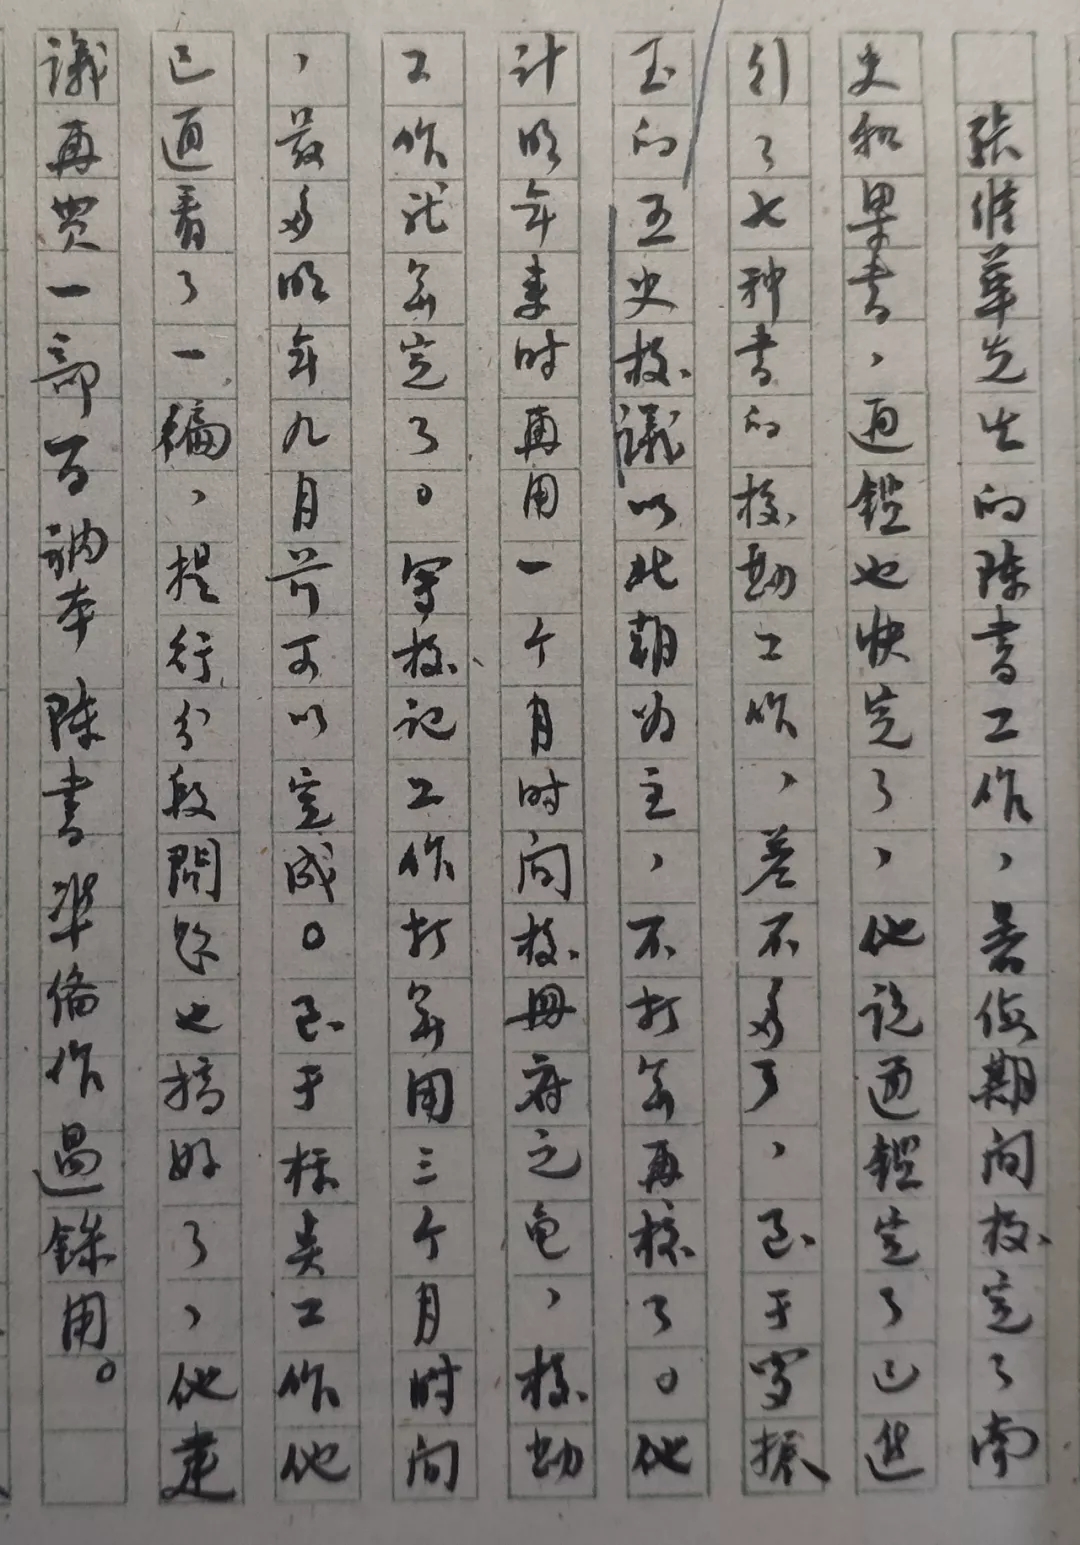 张维华先生的陈書工作，暑假期间校完了南
史和梁書，通鑑也快完了，他说通鑑完了已进
引了七种書的校勘工作，差不多了，至于罗振
玉的五史校議以北朝为主，不打算再校了。他
计明年来时再用一个月时间校册府之龟，校勘
工作就算完了。写校记工作打算用三个月时间
，最多明年九月前可以完成。至于标点工作他
已通看了一徧，提行分段問题也搞好了，他建
議再费一部百衲本陳書準備作過錄用。